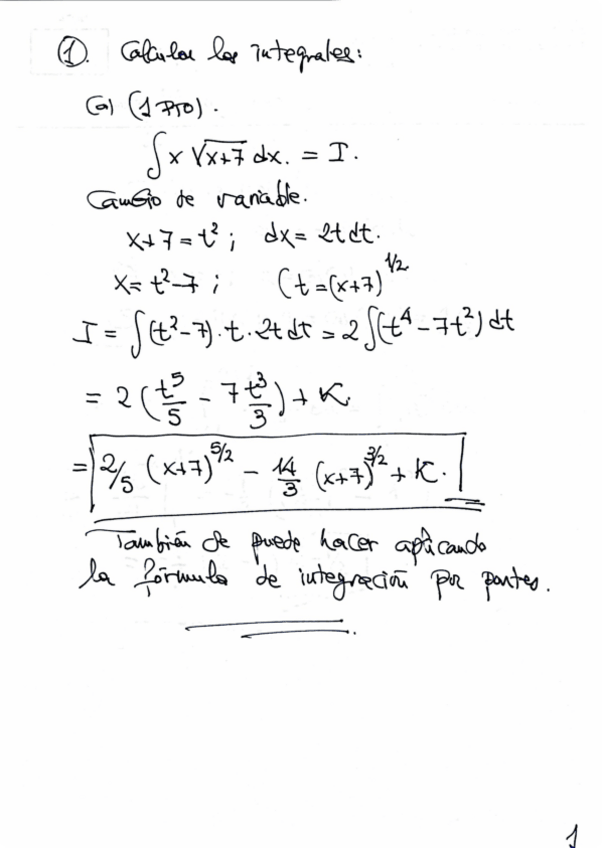 ①. Calcular las integrales:
(a) (1 Pto).
∫ x √(x+7) dx. = I.
Cambio de variable.
x+7 = t² ; dx = 2t dt.
x = t²-7 ; (t = (x+7)^1/2
I = ∫(t²-7)·t·2t dt = 2∫(t⁴-7t²) dt
= 2 (t⁵/5 - 7 t³/3) + K.
= 2/5 (x+7)^5/2 - 14/3 (x+7)^3/2 + K.
También se puede hacer aplicando
la fórmula de integración por partes.
1